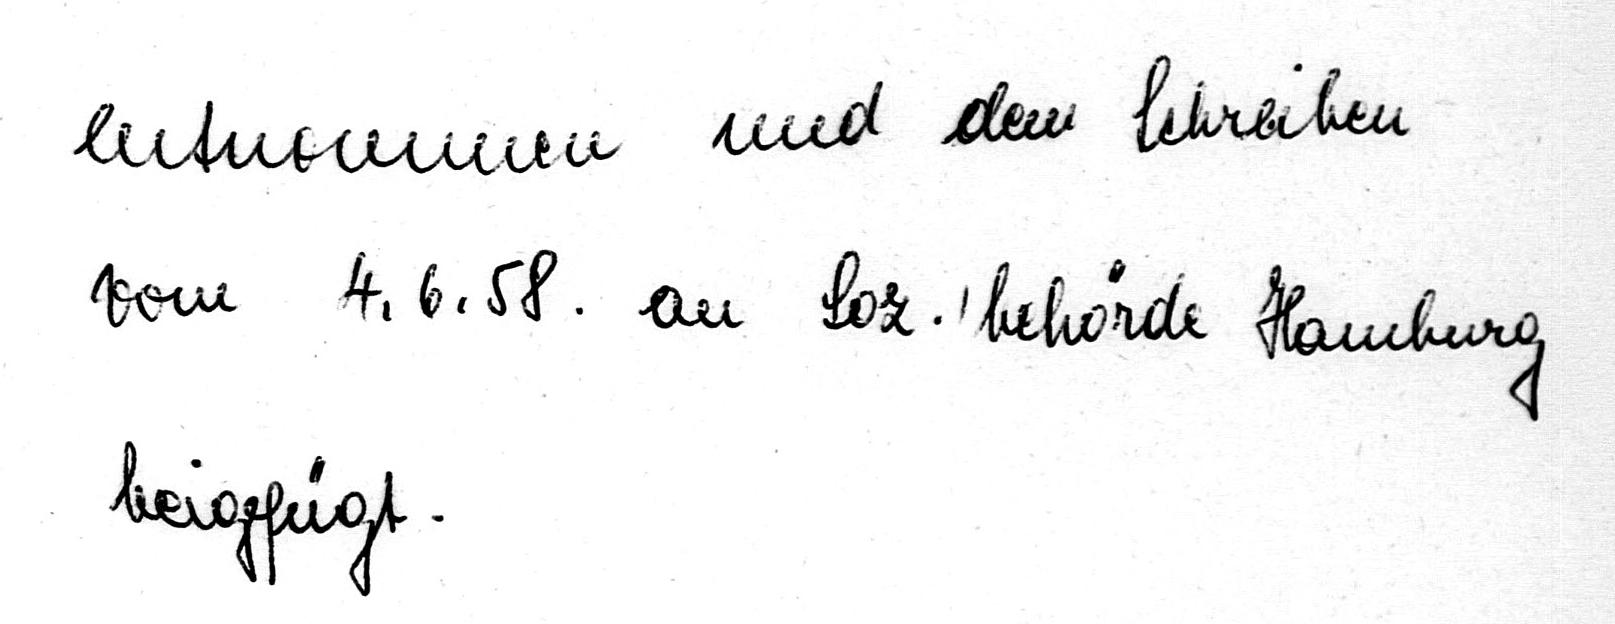 entnommen und dem Schreiben
vom 4.6.58. an Soz.behörde Hamburg
beigefügt.